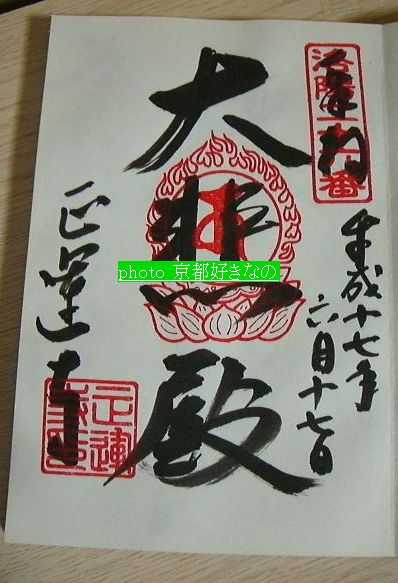 奉拝
洛陽二十六番
平成十七年
六月十七日
大悲殿
正運寺
正運
photo 京都好きなの